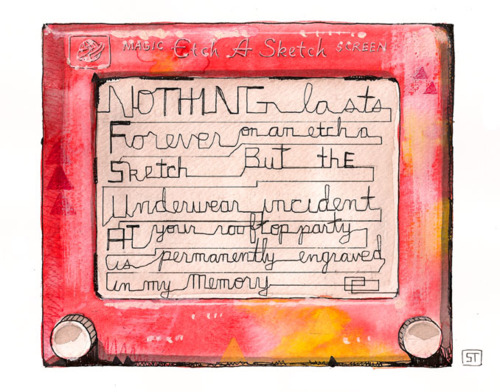 MAGIC Etch A Sketch SCREEN
NOTHING lasts
Forever on an etch a
Sketch But thE
Underwear incident
AT your rooftop party
is permanently engraved
in my Memory
ST